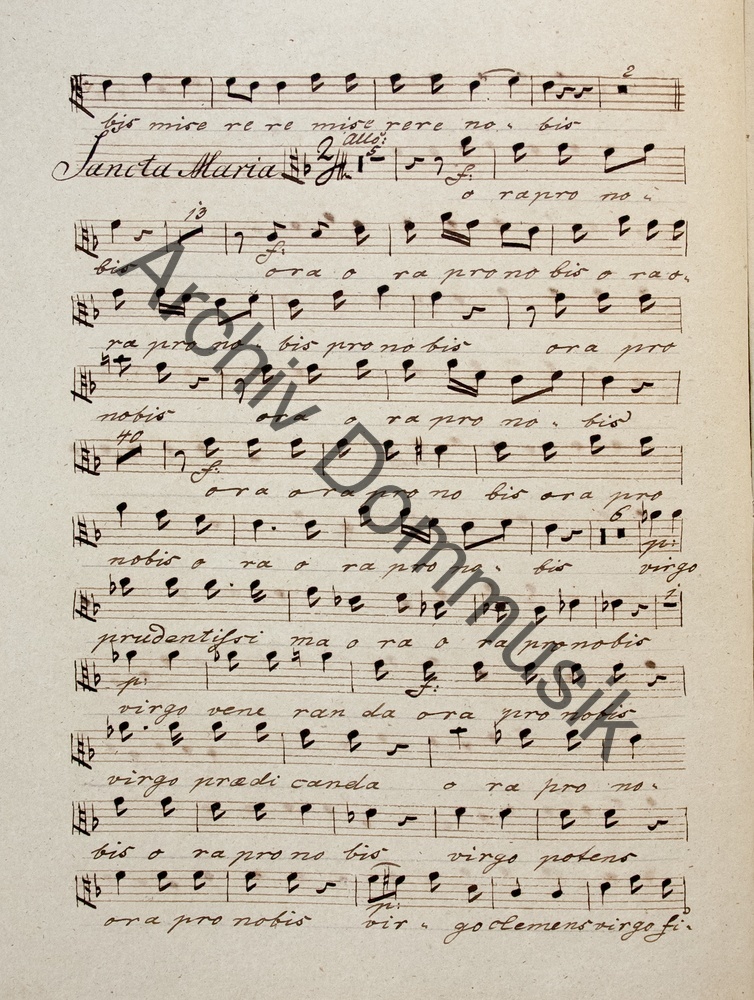 2
bis mise re re mise rere no - bis
Sancta Maria 2 Allo: 5
f:
o rapro no -
13
f:
bis ora o ra pronobis o rao -
ra pro no - bis pro nobis ora pro
nobis ora o ra pro no - bis
40
f:
ora ora pro no bis ora pro
6
p:
nobis o ra o ra pro no - bis virgo
1
prudentissi ma o ra o ra pronobis
p: f:
virgo vene ran da ora pro nobis
virgo prædi canda o ra pro no -
bis o ra pro no bis virgo potens
p:
ora pro nobis vir - go clemens virgo fi -
Archiv Dommusik